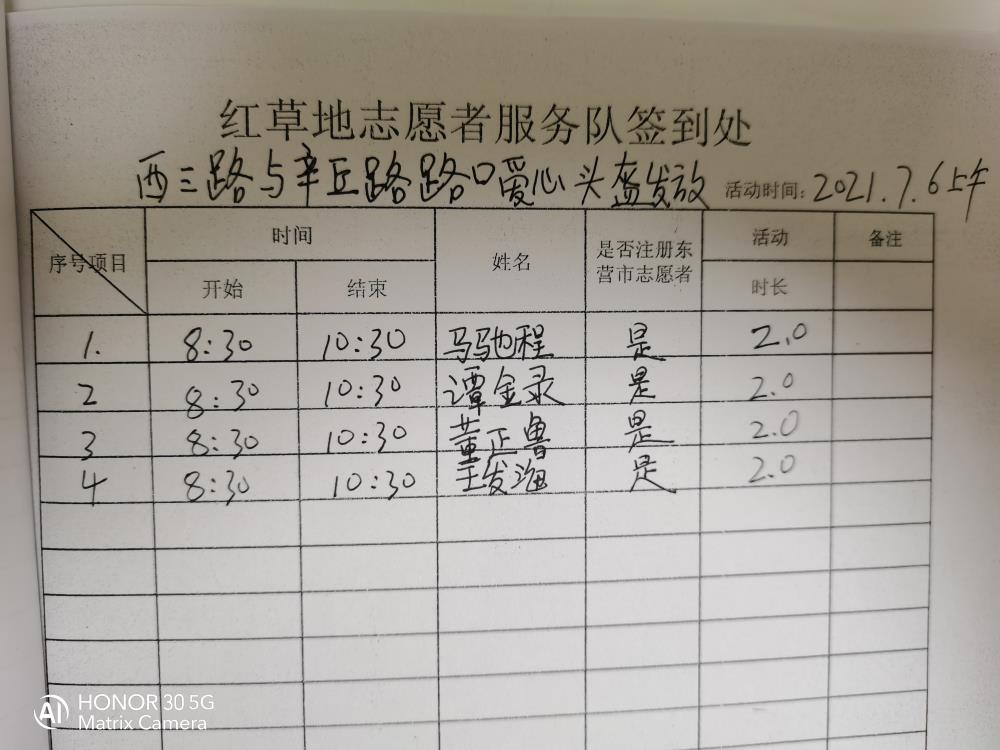 红草地志愿者服务队签到处
西三路与辛丘路路口爱心头盔发放 活动时间: 2021.7.6上午
序号项目 时间 姓名 是否注册东营市志愿者 活动 备注
开始 结束 时长
1. 8:30 10:30 马驰程 是 2.0
2 8:30 10:30 谭金录 是 2.0
3 8:30 10:30 董正鲁 是 2.0
4 8:30 10:30 王发海 是 2.0
HONOR 30 5G
Matrix Camera